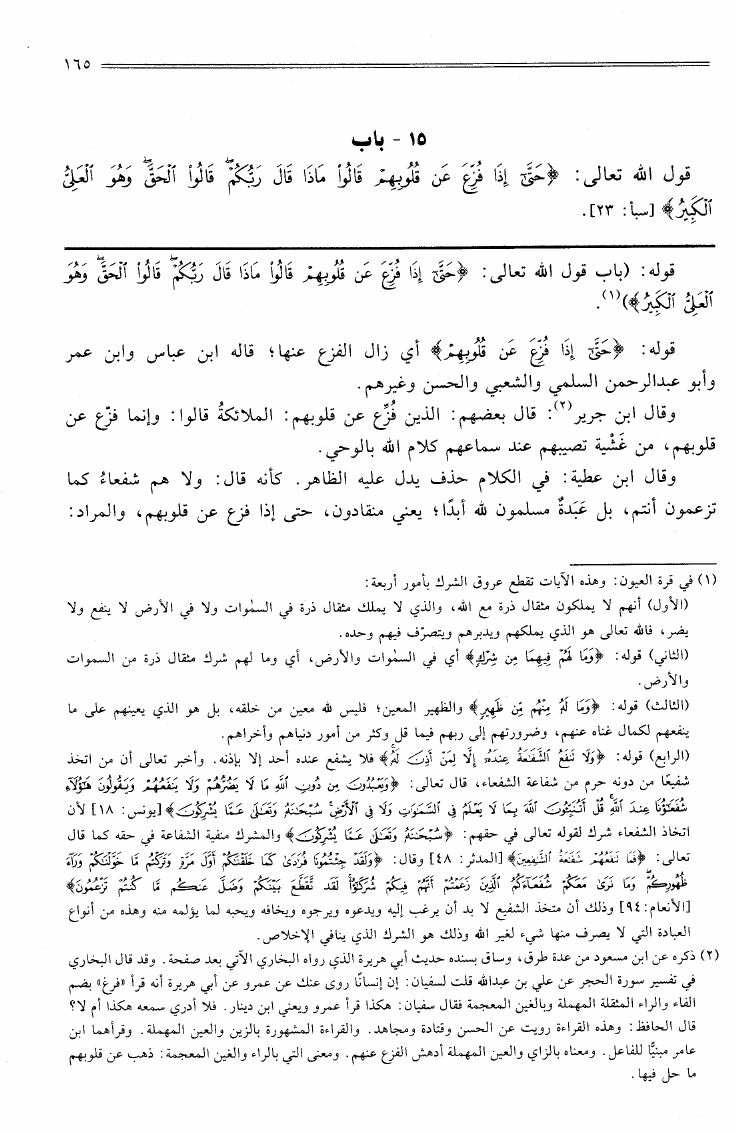 ١٦٥
١٥ - باب
قول الله تعالى: ﴿حَتَّىٰٓ إِذَا فُزِّعَ عَن قُلُوبِهِمْ قَالُوا۟ مَاذَا قَالَ رَبُّكُمْ ۖ قَالُوا۟ ٱلْحَقَّ ۖ وَهُوَ ٱلْعَلِىُّ
ٱلْكَبِيرُ﴾ [سبأ: ٢٣].
قوله: (باب قول الله تعالى: ﴿حَتَّىٰٓ إِذَا فُزِّعَ عَن قُلُوبِهِمْ قَالُوا۟ مَاذَا قَالَ رَبُّكُمْ ۖ قَالُوا۟ ٱلْحَقَّ ۖ وَهُوَ
ٱلْعَلِىُّ ٱلْكَبِيرُ﴾)(١).
قوله: ﴿حَتَّىٰٓ إِذَا فُزِّعَ عَن قُلُوبِهِمْ﴾ أي زال الفزع عنها؛ قاله ابن عباس وابن عمر
وأبو عبدالرحمن السلمي والشعبي والحسن وغيرهم.
وقال ابن جرير(٢): قال بعضهم: الذين فُزِّع عن قلوبهم: الملائكةُ قالوا: وإنما فزّع عن
قلوبهم، من غَشْية تصيبهم عند سماعهم كلام الله بالوحي.
وقال ابن عطية: في الكلام حذف يدل عليه الظاهر. كأنه قال: ولا هم شفعاءُ كما
تزعمون أنتم، بل عَبَدةٌ مسلمون لله أبدًا؛ يعني منقادون، حتى إذا فزع عن قلوبهم، والمراد:
(١) في قرة العيون: وهذه الآيات تقطع عروق الشرك بأمور أربعة:
(الأول) أنهم لا يملكون مثقال ذرة مع الله، والذي لا يملك مثقال ذرة في السمٰوات ولا في الأرض لا ينفع ولا
يضر، فالله تعالى هو الذي يملكهم ويدبرهم ويتصرّف فيهم وحده.
(الثاني) قوله: ﴿وَمَا لَهُمْ فِيهِمَا مِن شِرْكٍ﴾ أي في السمٰوات والأرض، أي وما لهم شرك مثقال ذرة من السموات
والأرض.
(الثالث) قوله: ﴿وَمَا لَهُۥ مِنْهُم مِّن ظَهِيرٍ﴾ والظهير المعين؛ فليس لله معين من خلقه، بل هو الذي يعينهم على ما
ينفعهم لكمال غناه عنهم، وضرورتهم إلى ربهم فيما قل وكثر من أمور دنياهم وأخراهم.
(الرابع) قوله: ﴿وَلَا نَنفَعُ ٱلشَّفَٰعَةُ عِندَهُۥٓ إِلَّا لِمَنْ أَذِنَ لَهُۥ﴾ فلا يشفع عنده أحد إلا بإذنه. وأخبر تعالى أن من اتخذ
شفيعًا من دونه حرم من شفاعة الشفعاء، قال تعالى: ﴿وَيَعْبُدُونَ مِن دُونِ ٱللَّهِ مَا لَا يَضُرُّهُمْ وَلَا يَنفَعُهُمْ وَيَقُولُونَ هَٰٓؤُلَآءِ
شُفَعَٰٓؤُنَا عِندَ ٱللَّهِ ۚ قُلْ أَتُنَبِّـُٔونَ ٱللَّهَ بِمَا لَا يَعْلَمُ فِى ٱلسَّمَٰوَٰتِ وَلَا فِى ٱلْأَرْضِ ۚ سُبْحَٰنَهُۥ وَتَعَٰلَىٰ عَمَّا يُشْرِكُونَ﴾ [يونس: ١٨] لأن
اتخاذ الشفعاء شرك لقوله تعالى في حقهم: ﴿سُبْحَٰنَهُۥ وَتَعَٰلَىٰ عَمَّا يُشْرِكُونَ﴾ والمشرك منفية الشفاعة في حقه كما قال
تعالى: ﴿فَمَا تَنفَعُهُمْ شَفَٰعَةُ ٱلشَّٰفِعِينَ﴾ [المدثر: ٤٨] وقال: ﴿وَلَقَدْ جِئْتُمُونَا فُرَٰدَىٰ كَمَا خَلَقْنَٰكُمْ أَوَّلَ مَرَّةٍ وَتَرَكْتُم مَّا خَوَّلْنَٰكُمْ وَرَآءَ
ظُهُورِكُمْ ۖ وَمَا نَرَىٰ مَعَكُمْ شُفَعَآءَكُمُ ٱلَّذِينَ زَعَمْتُمْ أَنَّهُمْ فِيكُمْ شُرَكَٰٓؤُا۟ ۚ لَقَد تَّقَطَّعَ بَيْنَكُمْ وَضَلَّ عَنكُم مَّا كُنتُمْ تَزْعُمُونَ﴾
[الأنعام: ٩٤] وذلك أن متخذ الشفيع لا بد أن يرغب إليه ويدعوه ويرجوه ويخافه ويحبه لما يؤمله منه وهذه من أنواع
العبادة التي لا يصرف منها شيء لغير الله وذلك هو الشرك الذي ينافي الإخلاص.
(٢) ذكره عن ابن مسعود من عدة طرق، وساق بسنده حديث أبي هريرة الذي رواه البخاري الآتي بعد صفحة. وقد قال البخاري
في تفسير سورة الحجر عن علي بن عبدالله قلت لسفيان: إن إنسانًا روى عنك عن عمرو عن أبي هريرة أنه قرأ «فرغ» بضم
الفاء والراء المثقلة المهملة وبالغين المعجمة فقال سفيان: هكذا قرأ عمرو ويعني ابن دينار. فلا أدري سمعه هكذا أم لا؟
قال الحافظ: وهذه القراءة رويت عن الحسن وقتادة ومجاهد. والقراءة المشهورة بالزين والعين المهملة. وقرأهما ابن
عامر مبنيًّا للفاعل. ومعناه بالزاي والعين المهملة أدهش الفزع عنهم. ومعنى التي بالراء والغين المعجمة: ذهب عن قلوبهم
ما حل فيها.